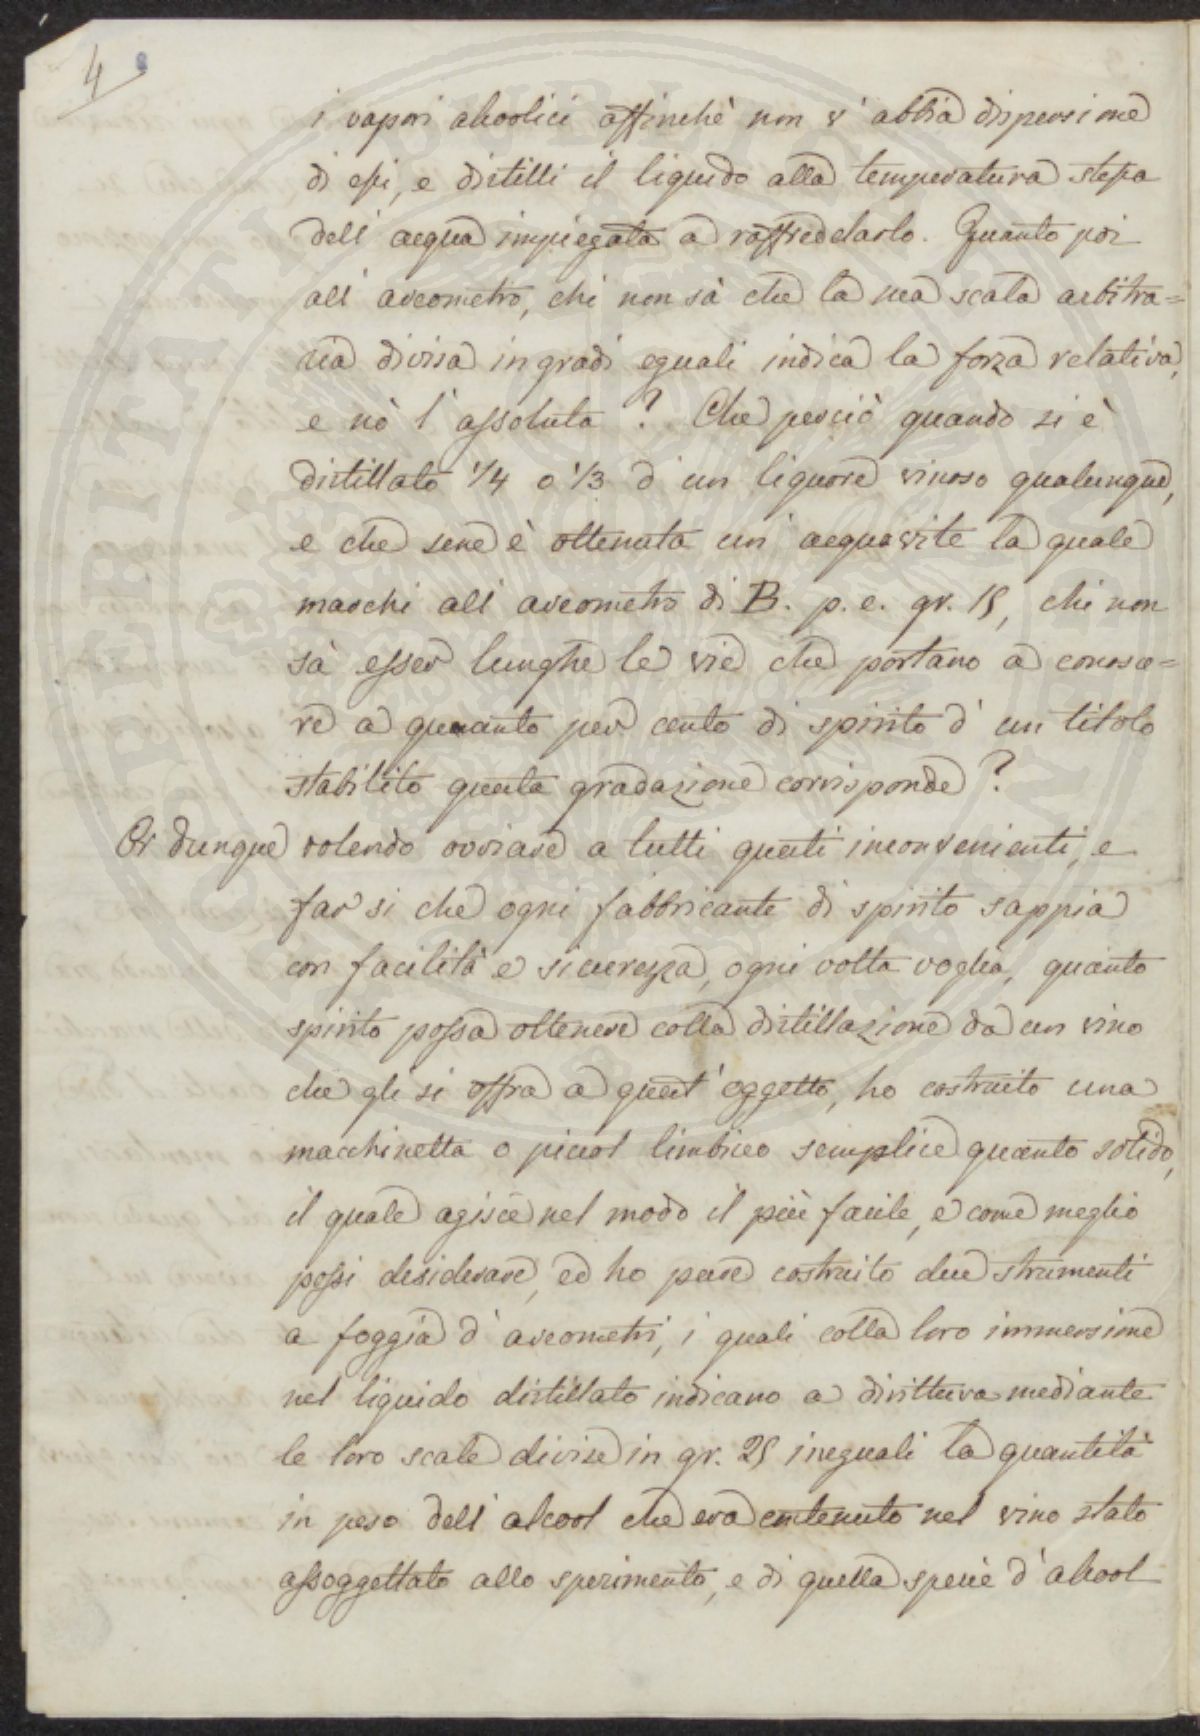 4
i vapori alcoolici affinchè non v' abbia dispersione
di essi, e distilli il liquido alla temperatura stessa
dell' acqua impiegata a raffreddarlo. Quanto poi
all' areometro, chi non sà che la sua scala arbitra=
ria divisa in gradi eguali indica la forza relativa,
e nò l' assoluta? Che perciò quando si è
distillato 1/4 o 1/3 d' un liquore vinoso qualunque,
e che sene è ottenuta un' acquavite la quale
marchi all' areometro di B. p. e. gr. 15, chi non
sà esser lunghe le vie che portano a conosce=
re a quanto per cento di spirito d' un titolo
stabilito questa gradazione corrisponde?
Or dunque volendo ovviare a tutti questi inconvenienti, e
far si che ogni fabbricante di spirito sappia
con facilità e sicurezza, ogni volta voglia, quanto
spirito possa ottenere colla distillazione da un vino
che gli si offra a quest' oggetto, ho costruito una
macchinetta o piccol limbicco semplice quanto solido,
il quale agisce nel modo il più facile, e come meglio
possi desiderare, ed ho pure costruito due strumenti
a foggia d' areometri, i quali colla loro immersione
nel liquido distillato indicano a dirittura mediante
le loro scale divise in gr. 25 ineguali la quantità
in peso dell' alcool che era contenuto nel vino stato
assoggettato allo sperimento, e di quella specie d' alcool
SPERITATI PUBLICAE